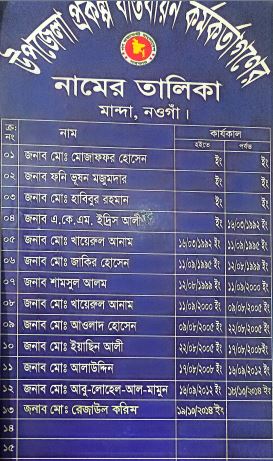 উপজেলা প্রকল্প বাস্তবায়ন কর্মকর্তাগণের
নামের তালিকা
মান্দা, নওগাঁ।
ক্রঃ নং নাম কার্যকাল
হইতে পর্যন্ত
০১ জনাব মোঃ মোজাফফর হোসেন ইং ইং
০২ জনাব ফনি ভূষন মজুমদার ইং ইং
০৩ জনাব মোঃ হাবিবুর রহমান ইং ইং
০৪ জনাব এ.কে.এম. ইদ্রিস আলী ইং ১৬/০৩/১৯৯২ ইং
০৫ জনাব মোঃ খায়েরুল আনাম ১৬/০৩/১৯৯২ ইং ১১/০৯/১৯৯৫ ইং
০৬ জনাব মোঃ জাকির হোসেন ১১/০৯/১৯৯৫ ইং ১২/০৮/১৯৯৯ ইং
০৭ জনাব শামসুল আলম ১২/০৮/১৯৯৯ ইং ১১/০৯/২০০০ ইং
০৮ জনাব মোঃ খায়েরুল আনাম ১১/০৯/২০০০ ইং ০৯/০৮/২০০৫ ইং
০৯ জনাব মোঃ আওলাদ হোসেন ০৯/০৮/২০০৫ ইং ২২/০৮/২০০৫ ইং
১০ জনাব মোঃ ইয়াছিন আলী ২২/০৮/২০০৫ ইং ১৭/০৮/২০০৮ ইং
১১ জনাব মোঃ আলাউদ্দিন ১৭/০৮/২০০৮ ইং ১৬/০৯/২০১২ ইং
১২ জনাব মোঃ আবু-লোহেল-আল-মামুন ১৬/০৯/২০১২ ইং ১৯/১০/২০১৪ ইং
১৩ জনাব মোঃ রেজাউল করিম ১৯/১০/২০১৪ ইং
১৪
১৫